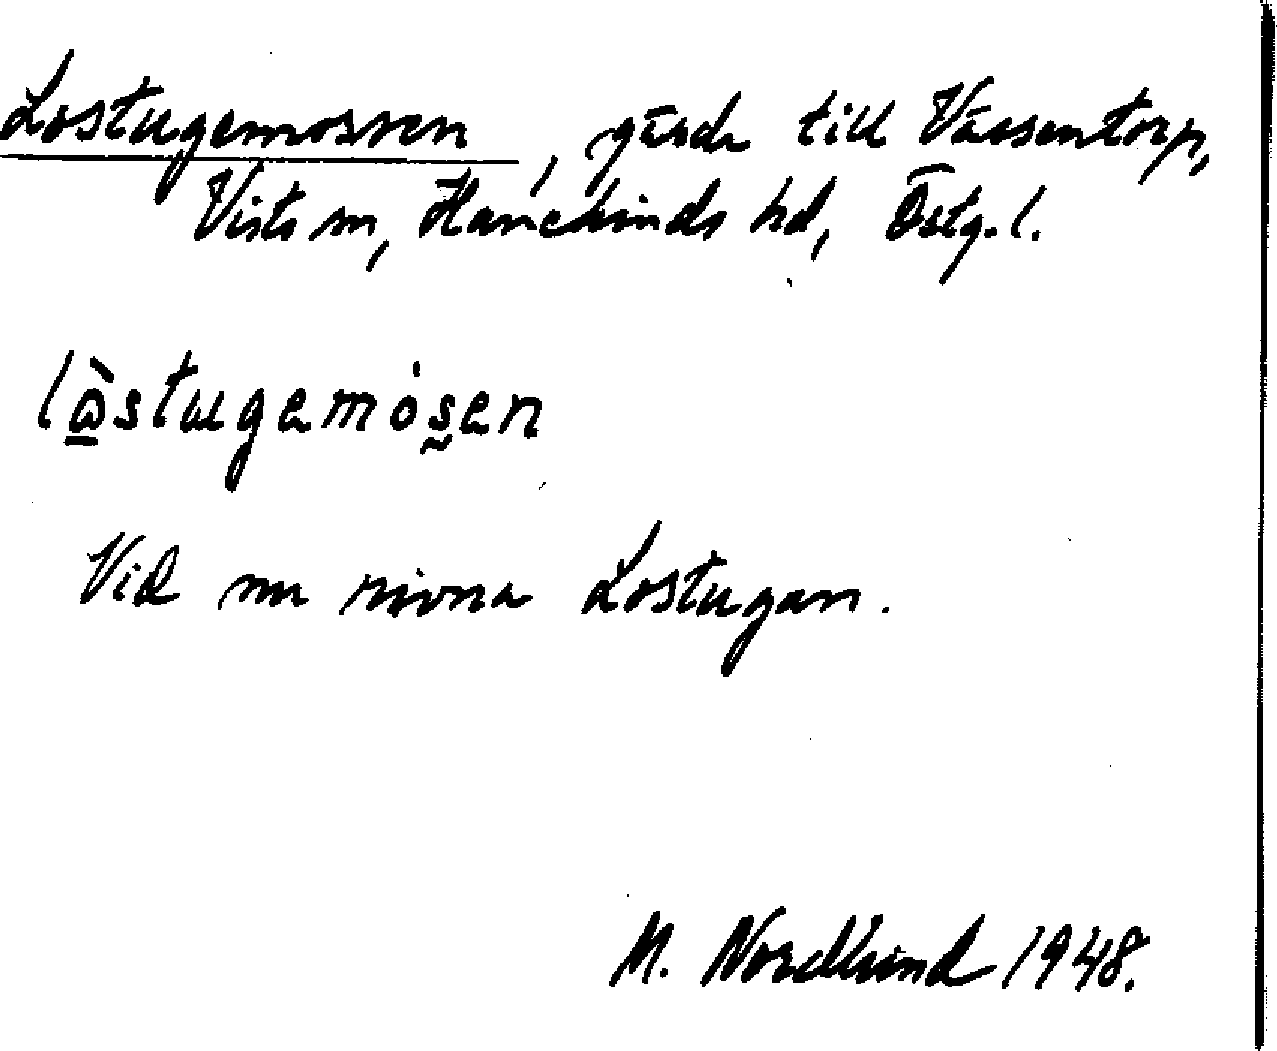 Lostugemossen, gärde till Vässentorp,
Vists sn, Hanekinds hd, Östg. l.
lòstugemósen
Vid nu rivna Lostugan.
M. Nordlund 1948.